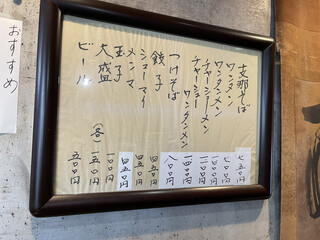 支那そば 七五〇円
ワンタン 七〇〇円
ワンタンメン
チャーシューメン
チャーシューワンタンメン
つけそば 八〇〇円
餃子 四五〇円
シューマイ 四五〇円
メンマ 四五〇円
玉子 一〇〇円
大盛 (各) 一五〇円
ビール 五〇〇円
おすすめ